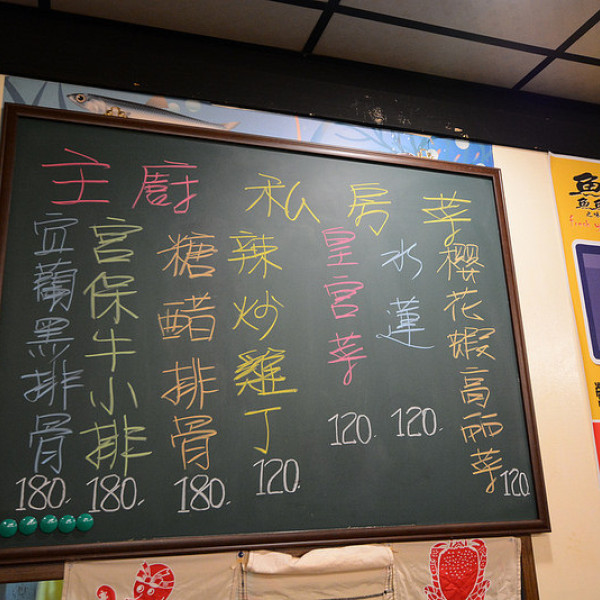 主廚私房菜
宜蘭黑排骨
180.
宮保牛小排
180.
糖醋排骨
180.
辣炒雞丁
120.
皇宮菜
120.
水蓮
120.
櫻花蝦高丽菜
120.
魚